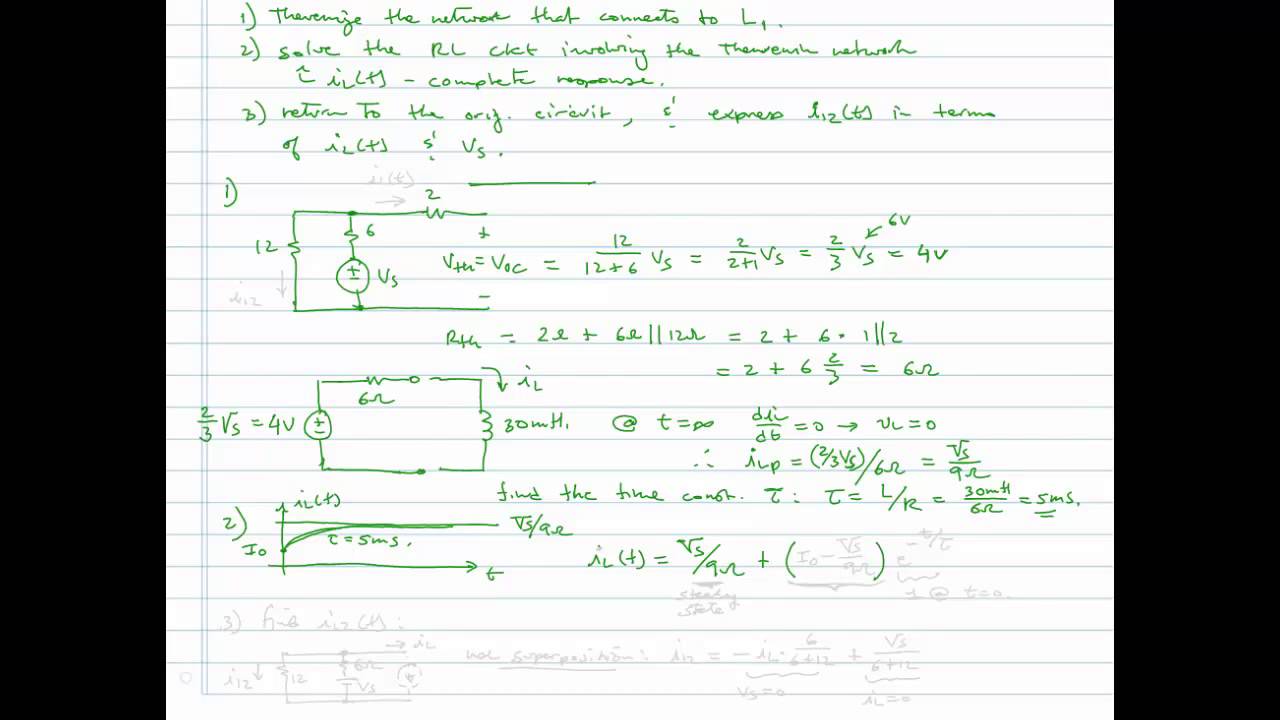 1) Thevenize the network that connects to L₁.
2) solve the RL ckt involving the Thevenin network
iL(t) – complete response.
3) return to the orig. circuit, & express i12(t) in terms
of iL(t) & Vs.
i1(t)
1)
2
12
6
Vs
i12
+
–
Vth = Voc = 12/(12+6) Vs = 2/(2+1) Vs = 2/3 Vs = 4V
6V
Rth = 2Ω + 6Ω||12Ω = 2 + 6 · 1||2
= 2 + 6 2/3 = 6Ω
6Ω
iL
2/3 Vs = 4V
30mH.
@ t = ∞ diL/dt = 0 → vL = 0
∴ iLp = (2/3Vs)/6Ω = Vs/9Ω
find the time const. τ: τ = L/R = 30mH/6Ω = 5ms.
2)
iL(t)
I0
τ = 5ms.
Vs/9Ω
t
iL(t) = Vs/9Ω + (I0 – Vs/9Ω) e^–t/τ
steady
state
1 @ t=0.
3) find i12(t):
iL
i12
12
6Ω
Vs
use superposition: i12 = –iL · 6/(6+12) + Vs/(6+12)
Vs=0
iL=0